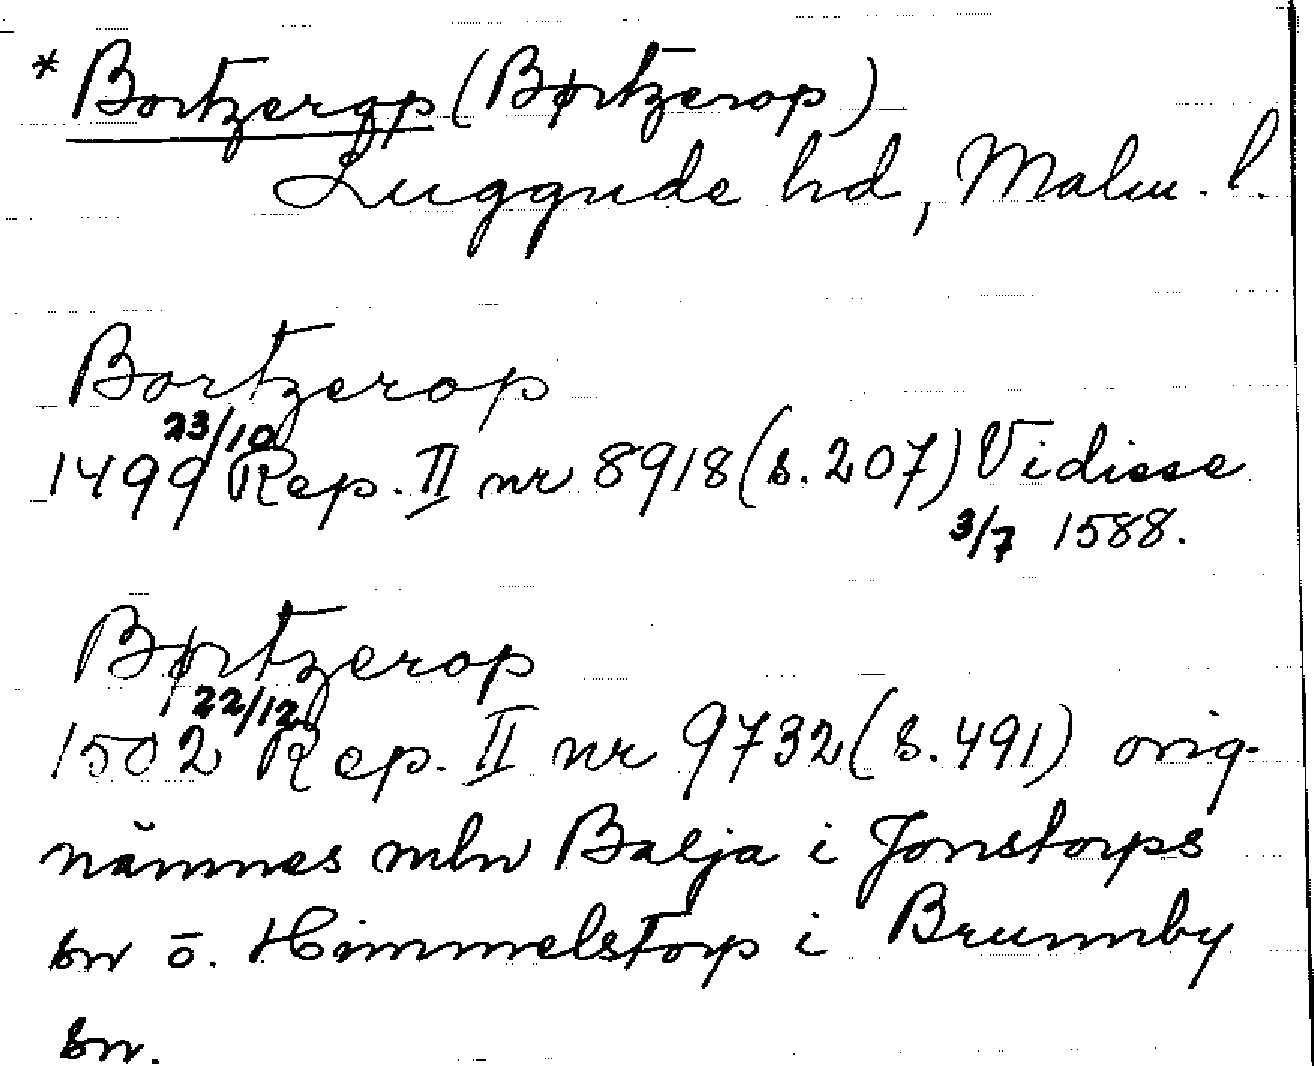 * Bortzerop (Børtzerop)
Luggude hd, Malm. l.
Bortzerop
1499 23/10 Rep. II nr 8918 (s. 207) Vidisse
3/7 1588.
Børtzerop
1502 22/12 Rep. II nr 9732 (s. 491) orig.
nämnes mln Balja i Jonstorps
sn o. Himmelstorp i Brunnby
sn.